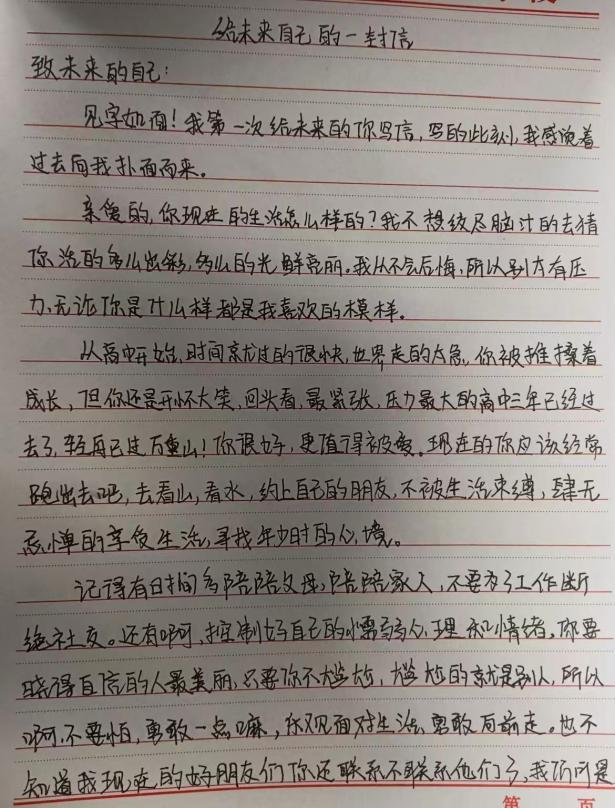 给未来自己的一封信
致未来的自己:
见字如面!我第一次给未来的你写信,写的此刻,我感觉着
过去向我扑面而来。
亲爱的,你现在的生活怎么样的?我不想绞尽脑汁的去猜
你活的多么出彩,多么的光鲜亮丽。我从不会后悔,所以别太有压
力,无论你是什么样都是我喜欢的模样。
从高中开始,时间就过的很快,世界走的太急,你被推搡着
成长,但你还是开怀大笑,回头看,最紧张,压力最大的高中三年已经过
去了,轻舟已过万重山!你很好,更值得被爱。现在的你应该经常
跑出去吧,去看山,看水,约上自己的朋友,不被生活束缚,肆无
忌惮的享受生活,寻找年少时的心境。
记得有时间多陪陪父母,陪陪家人,不要为了工作断
绝社交。还有啊,控制好自己的情绪,你要
晓得自信的人最美丽,只要你不尴尬,尴尬的就是别人,所以
啊,不要怕,勇敢一点嘛,乐观面对生活,勇敢向前走。也不
知道我现在的好朋友们你还联系不联系他们了,我们可是
第 页